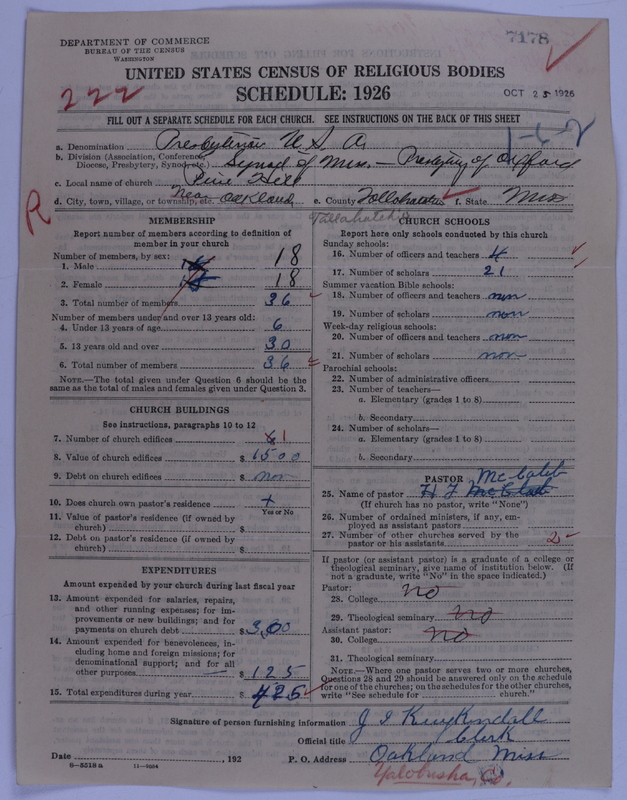 7178
DEPARTMENT OF COMMERCE
BUREAU OF THE CENSUS
WASHINGTON
UNITED STATES CENSUS OF RELIGIOUS BODIES
SCHEDULE: 1926
OCT 25 1926
222
FILL OUT A SEPARATE SCHEDULE FOR EACH CHURCH. SEE INSTRUCTIONS ON THE BACK OF THIS SHEET
1-6-2
a. Denomination Presbyterian U S A
b. Division (Association, Conference, Diocese, Presbytery, Synod, etc.) Synod of Miss. — Presbytery of Oxford
c. Local name of church Pine Hill
d. City, town, village, or township, etc. Near Oakland e. County Tallahatchie f. State Miss
Tallahatchie
R
MEMBERSHIP
Report number of members according to definition of
member in your church
Number of members, by sex:
1. Male 18
2. Female 18
3. Total number of members 36
Number of members under and over 13 years old:
4. Under 13 years of age 6
5. 13 years old and over 30
6. Total number of members 36
NOTE.—The total given under Question 6 should be
same as the total of males and females given under Question 3.
CHURCH BUILDINGS
See instructions, paragraphs 10 to 12
7. Number of church edifices 1
8. Value of church edifices $ 1500
9. Debt on church edifices $ non
10. Does church own pastor's residence? +
Yes or No
11. Value of pastor's residence (if owned by
church) $
12. Debt on pastor's residence (if owned by
church) $
EXPENDITURES
Amount expended by your church during last fiscal year
13. Amount expended for salaries, repairs,
and other running expenses; for im-
provements or new buildings; and for
payments on church debt $ 300
14. Amount expended for benevolences, in-
cluding home and foreign missions; for
denominational support; and for all
other purposes $ 125
15. Total expenditures during year $ 425
CHURCH SCHOOLS
Report here only schools conducted by this church
Sunday schools:
16. Number of officers and teachers 4
17. Number of scholars 21
Summer vacation Bible schools:
18. Number of officers and teachers non
19. Number of scholars non
Week-day religious schools:
20. Number of officers and teachers non
21. Number of scholars non
Parochial schools:
22. Number of administrative officers
23. Number of teachers—
a. Elementary (grades 1 to 8)
b. Secondary
24. Number of scholars—
a. Elementary (grades 1 to 8)
b. Secondary
PASTOR
McCaleb
25. Name of pastor H J
(If church has no pastor, write "None")
26. Number of ordained ministers, if any, em-
ployed as assistant pastors
27. Number of other churches served by the
pastor or his assistants 2
If pastor (or assistant pastor) is a graduate of a college or
theological seminary, give name of institution below. (If
not a graduate, write "No" in the space indicated.)
Pastor:
28. College no
29. Theological seminary no
Assistant pastor:
30. College no
31. Theological seminary
NOTE.—Where one pastor serves two or more churches,
Questions 28 and 29 should be answered only on the schedule
for one of the churches; on the schedules for the other churches,
write "See schedule for church."
Signature of person furnishing information J S Kuykendall
Official title Clerk
Date , 192 P. O. Address Oakland Miss
6-5518 a 11-9084
Yalobusha Co.